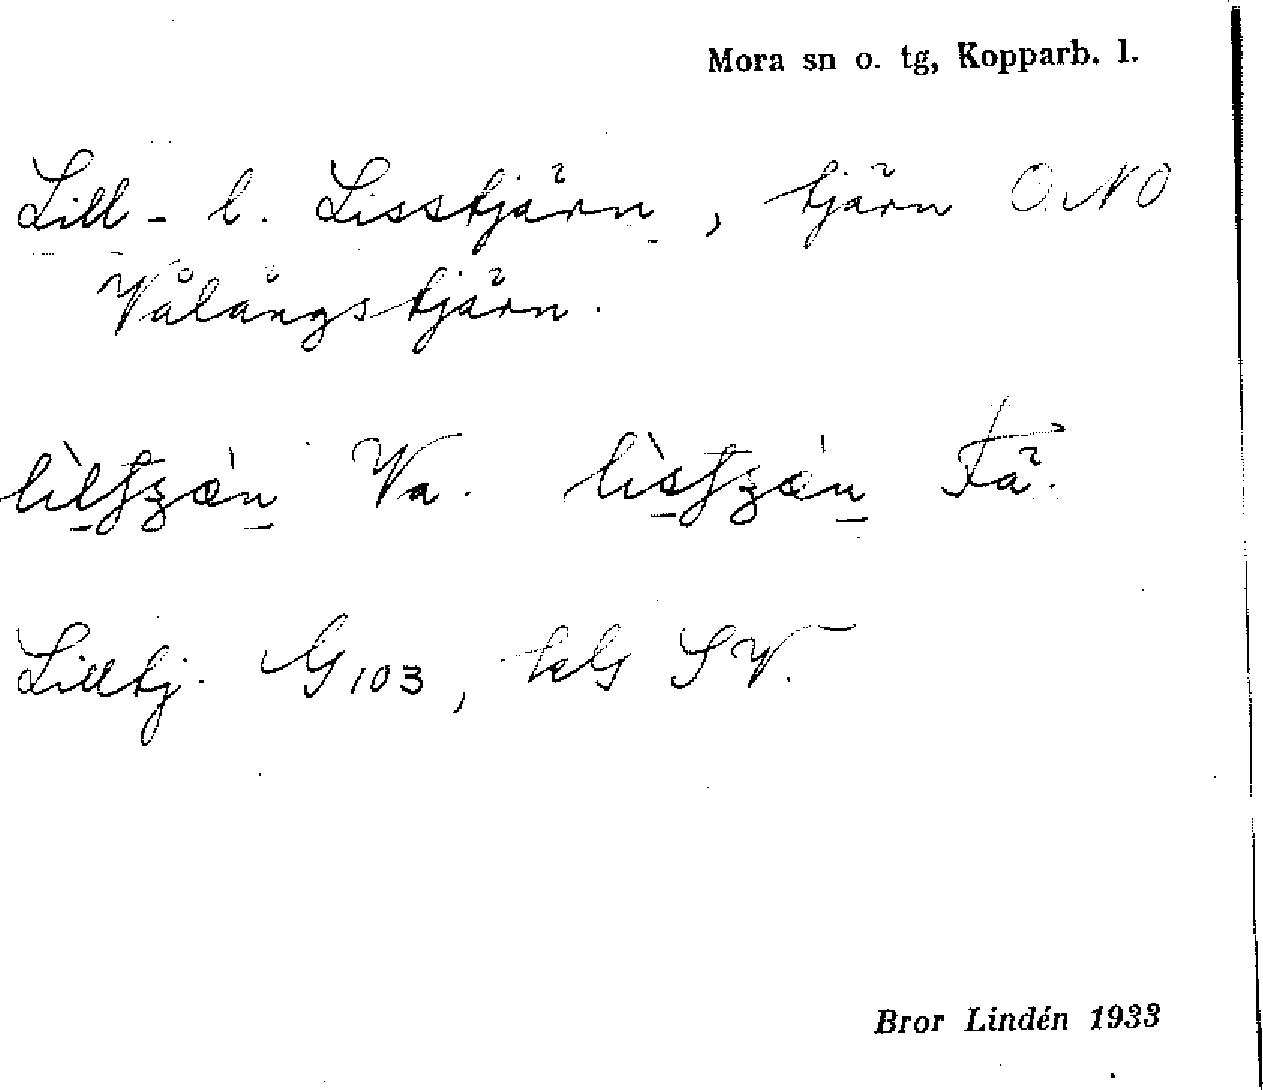 Mora sn o. tg, Kopparb. l.
Lill- l. Lisstjärn, tjärn O.NO
Vålångstjärn.
Va. Fä.
Lilltj. G103, SV.
Bror Lindén 1933